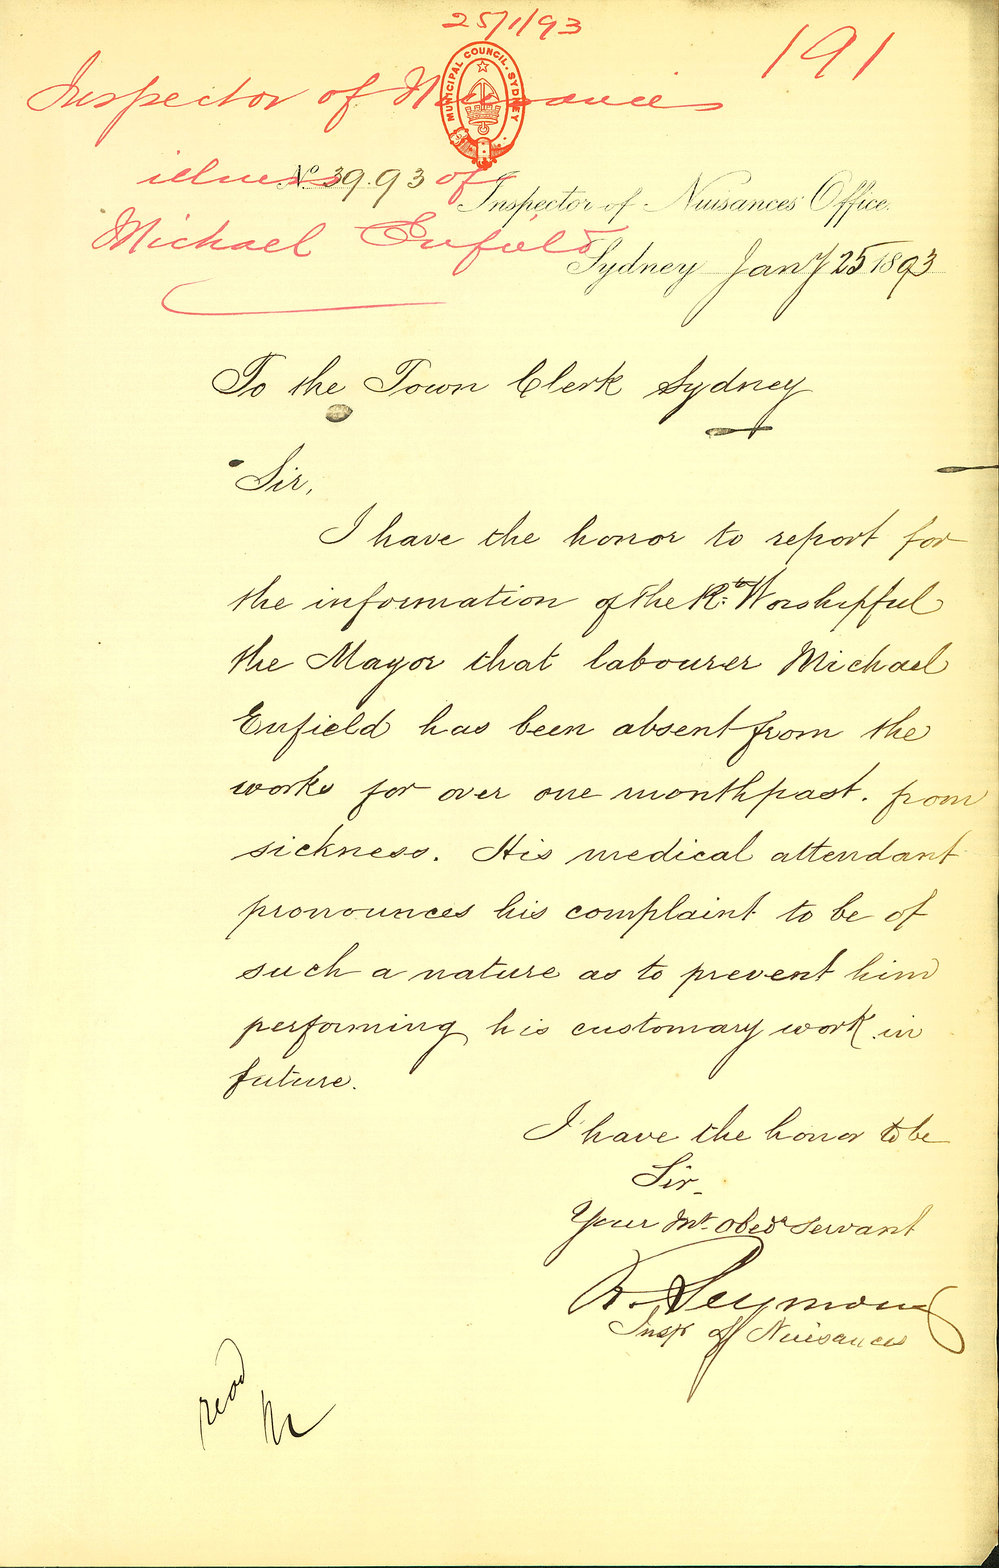 25/1/93
191
MUNICIPAL COUNCIL. SYDNEY
Inspector of Nuisances
illness of
Michael Enfield
No. 39.93
Inspector of Nuisances Office.
Sydney Jany 25 1893
To the Town Clerk Sydney
Sir,
I have the honor to report for
the information of the Rt. Worshipful
the Mayor that labourer Michael
Enfield has been absent from the
works for over one month past. from
sickness. His medical attendant
pronounces his complaint to be of
such a nature as to prevent him
performing his customary work in
future.
I have the honor to be
Sir.
Your Mt. Obedt servant
R. Seymour
Inspr of Nuisances
read